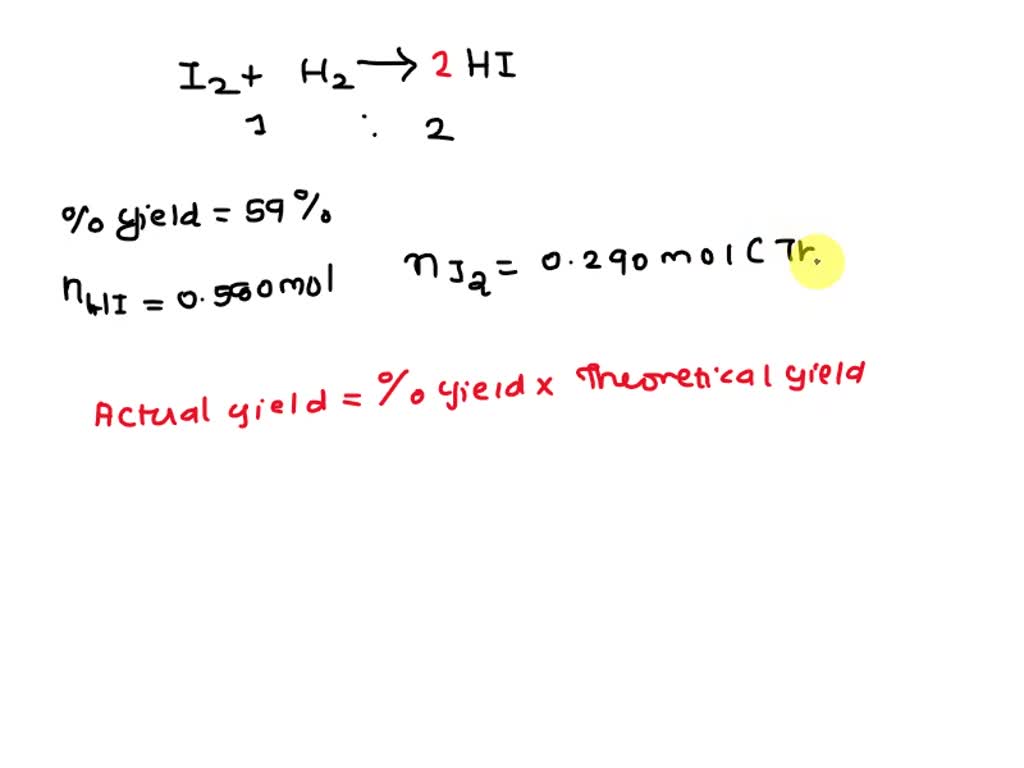 I2 + H2 → 2 HI
1 : 2
% yield = 59%
nHI = 0.580 mol
nI2 = 0.290 mol (Th.
Actual yield = % yield x Theoretical yield